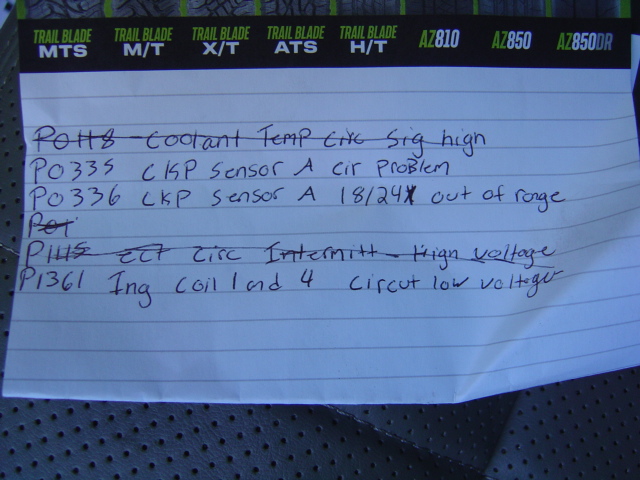 TRAIL BLADE TRAIL BLADE TRAIL BLADE TRAIL BLADE TRAIL BLADE AZ810 AZ850 AZ850DR
MTS M/T X/T ATS H/T
P0118 - coolant Temp circ Sig high
P0335 CKP sensor A cir Problem
P0336 CKP sensor A 18/24X out of range
P01
P1115 ECT circ Intermitt - High voltage
P1361 Ing coil 1 and 4 circut low voltage